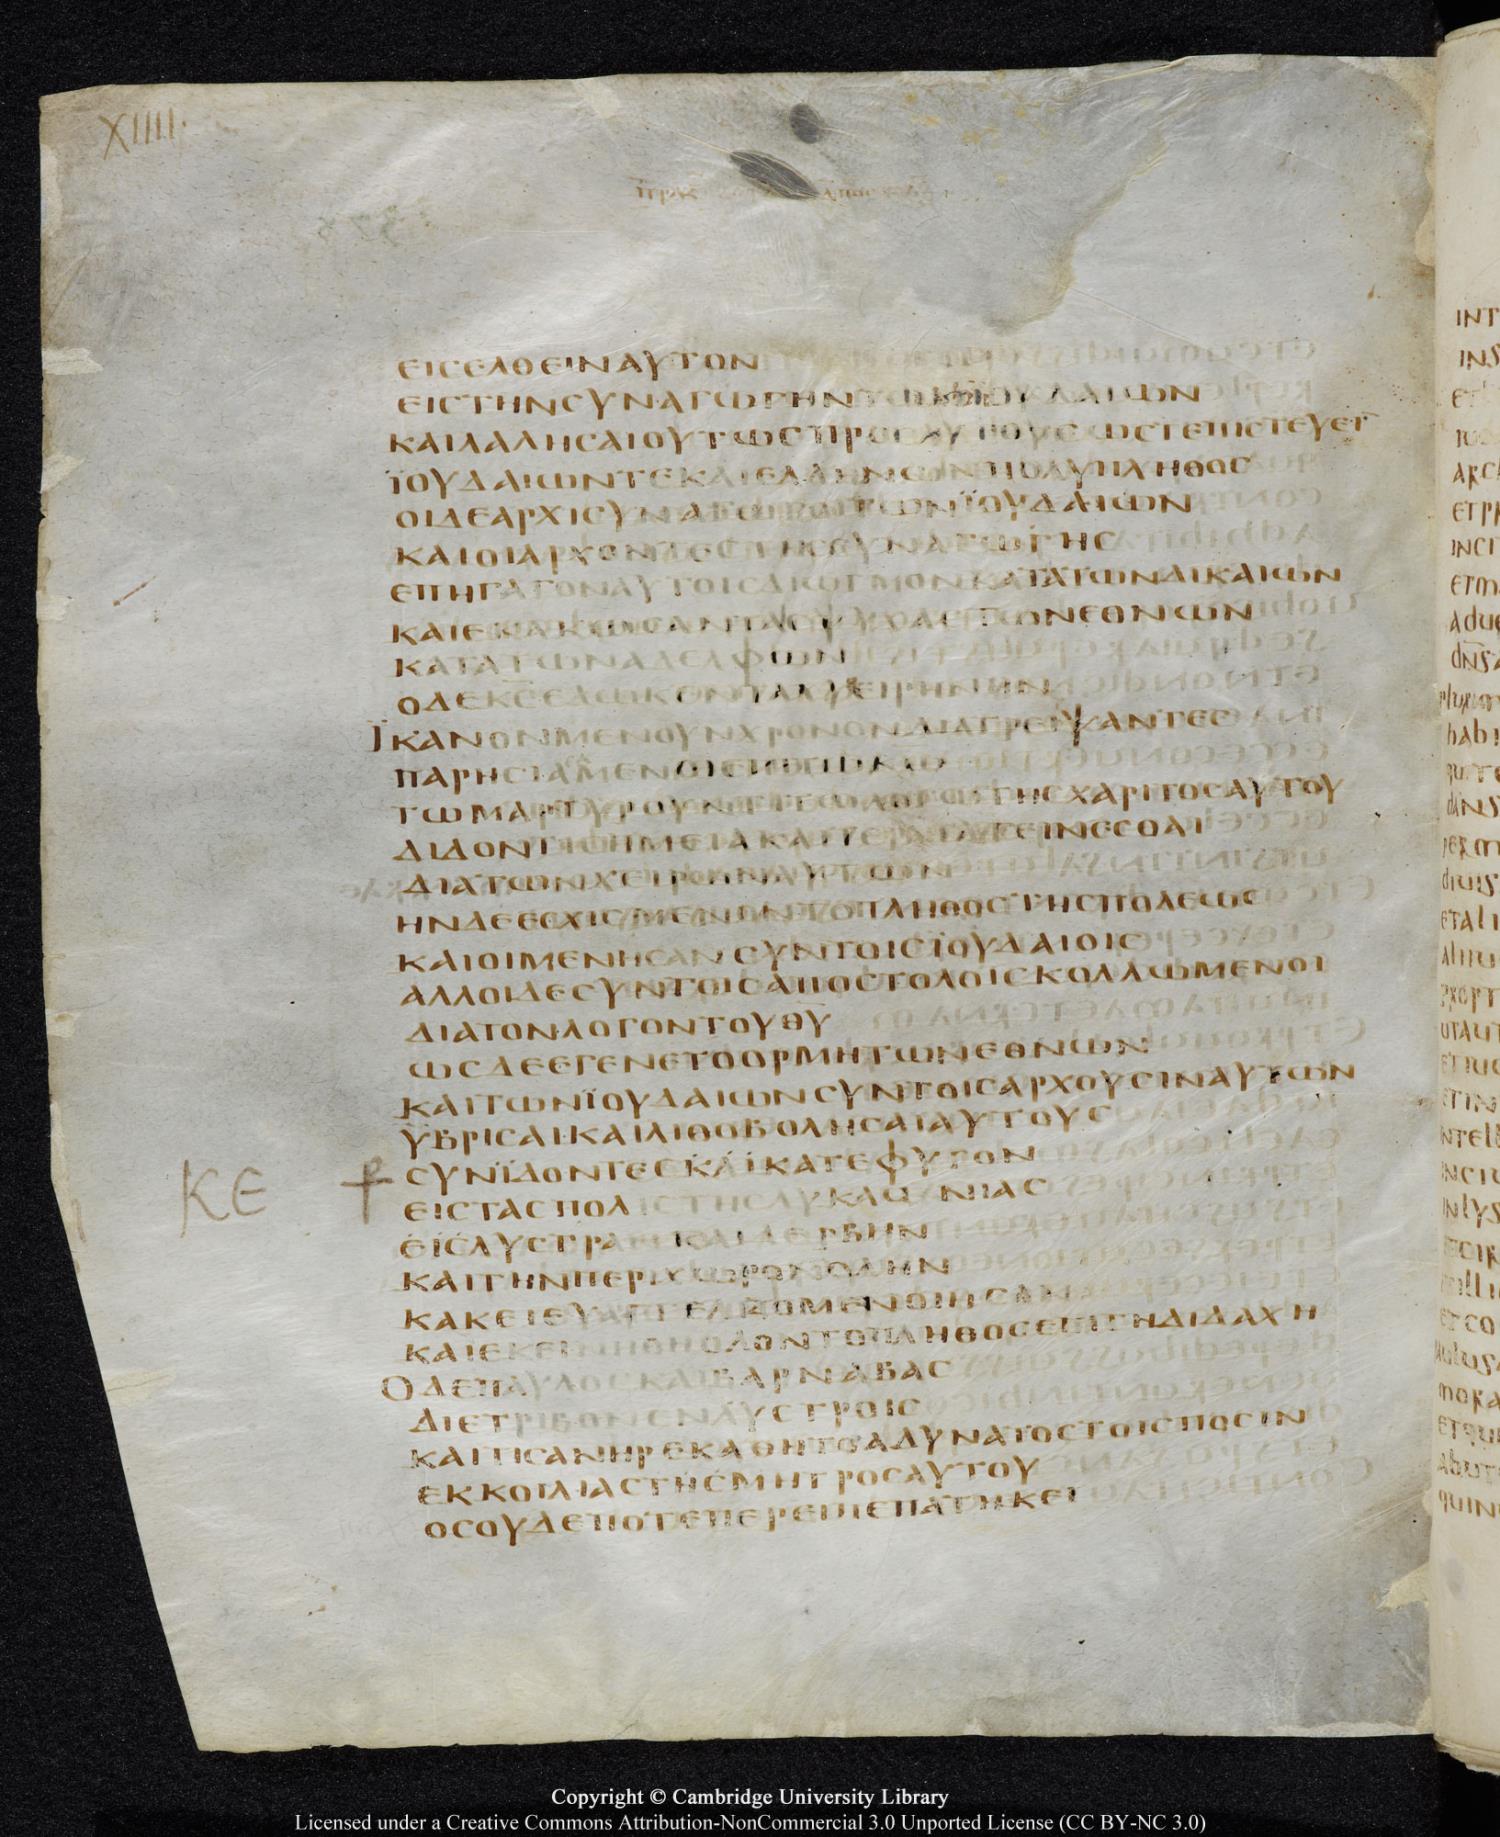 XIIII·
ΕΙCΕΛΘΕΙΝΑΥΤΟΝ
ΕΙCΤΗΝCΥΝΑΓΩΓΗΝΤΩΝΪΟΥΔΑΙΩΝ
ΚΑΙΛΑΛΗCΑΙΟΥΤΩCΠΡΟCΑΥΤΟΥCΩCΤΕΠΙCΤΕΥΕΙΝ
ΪΟΥΔΑΙΩΝΤΕΚΑΙΕΛΛΗΝΩΝΠΟΛΥΠΛΗΘΟC
ΟΙΔΕΑΡΧΙCΥΝΑΓΩΓΟΙΤΩΝΪΟΥΔΑΙΩΝ
ΚΑΙΟΙΑΡΧΟΝΤΕCΤΗCCΥΝΑΓΩΓΗC
ΕΠΗΓΑΓΟΝΑΥΤΟΙCΔΙΩΓΜΟΝΚΑΤΑΤΩΝΔΙΚΑΙΩΝ
ΚΑΙΕΚΑΚΩCΑΝΤΑCΨΥΧΑCΤΩΝΕΘΝΩΝ
ΚΑΤΑΤΩΝΑΔΕΛΦΩΝ
ΟΔΕΚCΕΔΩΚΕΝΤΑΧΥΕΙΡΗΝΗΝ
ΪΚΑΝΟΝΜΕΝΟΥΝΧΡΟΝΟΝΔΙΑΤΡΕΙΨΑΝΤΕC
ΠΑΡΗCΙΑCΑΜΕΝΟΙΕΠΙΤΩΚΩ
ΤΩΜΑΡΤΥΡΟΥΝΤΙΤΩΛΟΓΩΤΗCΧΑΡΙΤΟCΑΥΤΟΥ
ΔΙΔΟΝΤΙCΗΜΕΙΑΚΑΙΤΕΡΑΤΑΓΕΙΝΕCΘΑΙ
ΔΙΑΤΩΝΧΕΙΡΩΝΑΥΤΩΝ
ΗΝΔΕΕCΧΙCΜΕΝΟΝΤΟΠΛΗΘΟCΤΗCΠΟΛΕΩC
ΚΑΙΟΙΜΕΝΗCΑΝCΥΝΤΟΙCΪΟΥΔΑΙΟΙC
ΑΛΛΟΙΔΕCΥΝΤΟΙCΑΠΟCΤΟΛΟΙCΚΟΛΛΩΜΕΝΟΙ
ΔΙΑΤΟΝΛΟΓΟΝΤΟΥΘΥ
ΩCΔΕΕΓΕΝΕΤΟΟΡΜΗΤΩΝΕΘΝΩΝ
ΚΑΙΤΩΝΪΟΥΔΑΙΩΝCΥΝΤΟΙCΑΡΧΟΥCΙΝΑΥΤΩΝ
ΥΒΡΙCΑΙ·ΚΑΙΛΙΘΟΒΟΛΗCΑΙΑΥΤΟΥC
ΚΕ CΥΝΪΔΟΝΤΕCΚΑΙΚΑΤΕΦΥΓΟΝ
ΕΙCΤΑCΠΟΛΙCΤΗCΛΥΚΑΩΝΙΑC
ΕΙCΛΥCΤΡΑΚΑΙΔΕΡΒΗΝ
ΚΑΙΤΗΝΠΕΡΙΧΩΡΟΝΟΛΗΝ
ΚΑΚΕΙΕΥΑΓΓΕΛΙΖΟΜΕΝΟΙΗCΑΝ
ΚΑΙΕΚΕΙΝΗΘΗΟΛΟΝΤΟΠΛΗΘΟCΕΠΙΤΗΔΙΔΑΧΗ
ΟΔΕΠΑΥΛΟCΚΑΙΒΑΡΝΑΒΑC
ΔΙΕΤΡΙΒΟΝΕΝΛΥCΤΡΟΙC
ΚΑΙΤΙCΑΝΗΡΕΚΑΘΗΤΟΑΔΥΝΑΤΟCΤΟΙCΠΟCΙΝ
ΕΚΚΟΙΛΙΑCΤΗCΜΗΤΡΟCΑΥΤΟΥ
ΟCΟΥΔΕΠΟΤΕΠΕΡΕΙΠΕΠΑΤΗΚΕΙ
Copyright © Cambridge University Library
Licensed under a Creative Commons Attribution-NonCommercial 3.0 Unported License (CC BY-NC 3.0)